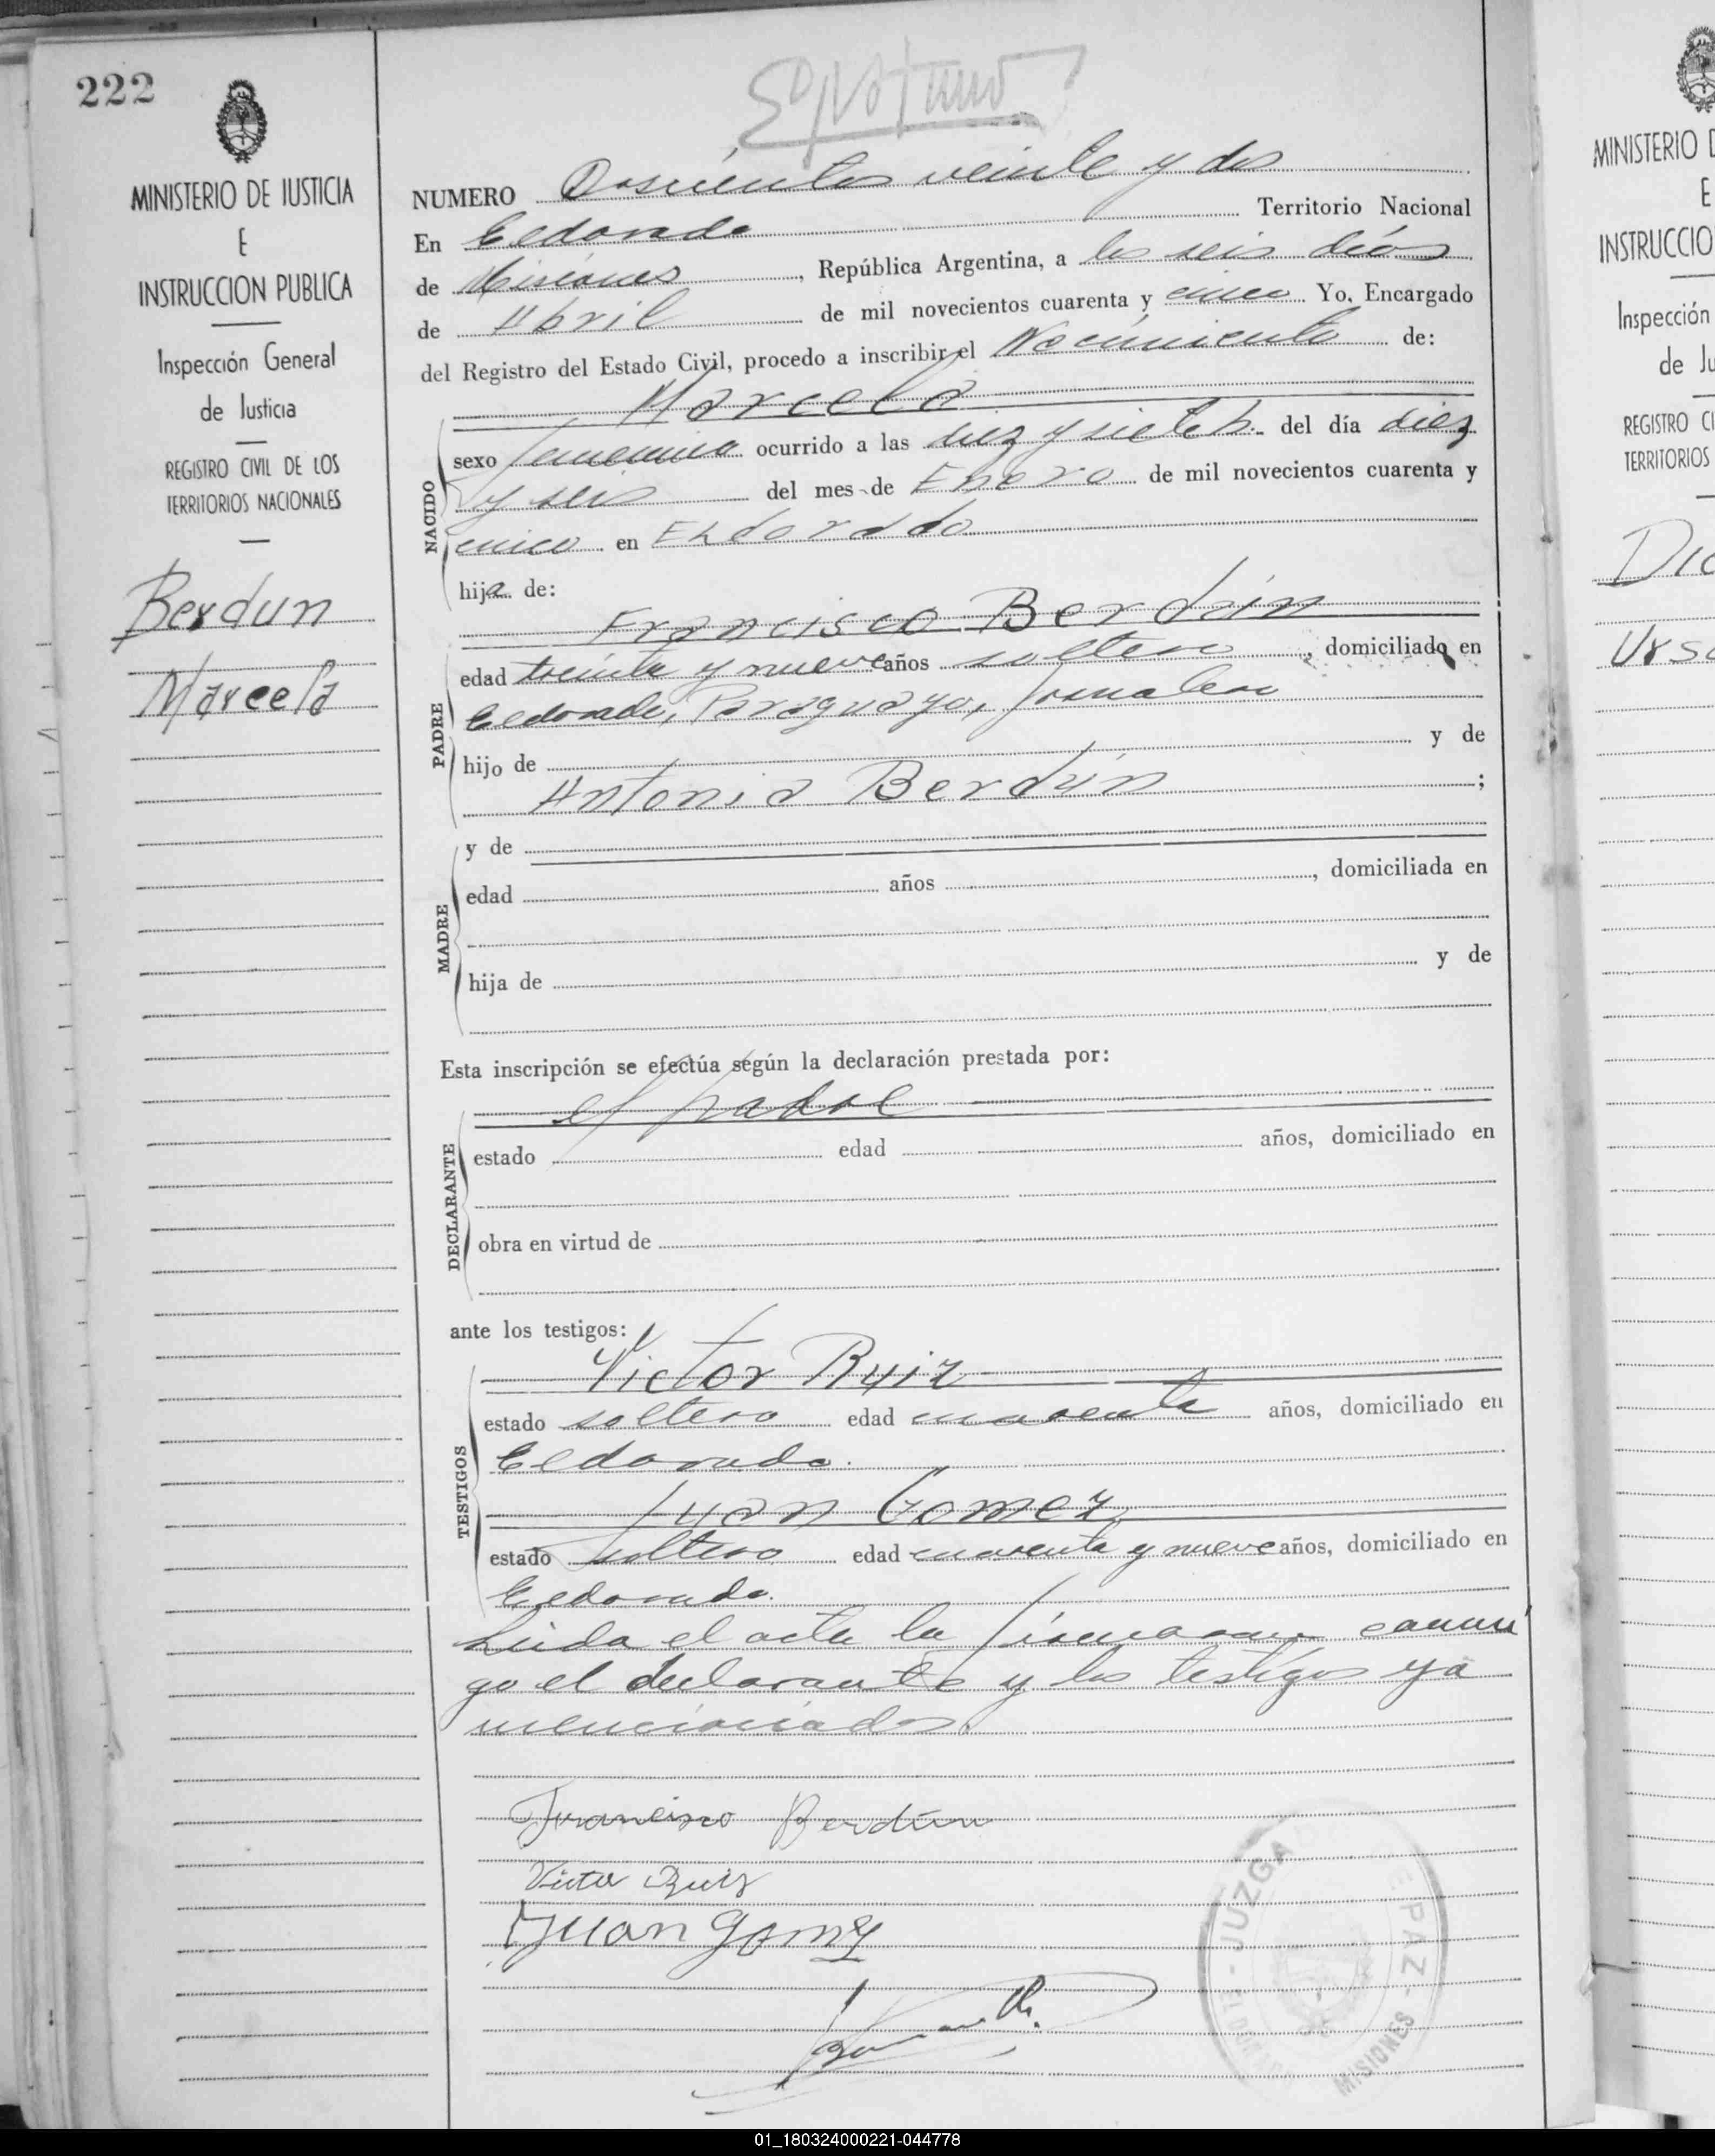 222
MINISTERIO DE JUSTICIA
E
INSTRUCCION PUBLICA
Inspección General
de Justicia
REGISTRO CIVIL DE LOS
TERRITORIOS NACIONALES
Berdun
Marcela
NUMERO Doscientos veinte y dos
En Eldorado Territorio Nacional
de Misiones, República Argentina, a los seis días
de Abril de mil novecientos cuarenta y cinco Yo, Encargado
del Registro del Estado Civil, procedo a inscribir el Nacimiento de:
Marcela
NACIDO
sexo femenino ocurrido a las diez y siete h. del día diez
y seis del mes de Enero de mil novecientos cuarenta y
cinco en Eldorado
hija de:
Francisco Berdún
PADRE
edad treinta y nueve años soltero, domiciliado en
Eldorado, Paraguayo, Jornalero
hijo de y de
Antonia Berdún ;
MADRE
y de
edad años , domiciliada en
hija de y de
Esta inscripción se efectúa según la declaración prestada por:
el padre
DECLARANTE
estado edad años, domiciliado en
obra en virtud de
ante los testigos:
Victor Ruiz
TESTIGOS
estado soltero edad cuarenta años, domiciliado en
Eldorado.
Juan Gomez
estado soltero edad cuarenta y nueve años, domiciliado en
Eldorado.
Leída el acta la firmaron conmi
go el declarante y los testigos ya
mencionados.
Francisco Berdún
Victor Ruiz
Juan Gomez
JUZGA
E PAZ -
MISIONES
MINISTERIO D
E
INSTRUCCIO
Inspección
de Ju
REGISTRO CI
TERRITORIOS
01_180324000221-044778